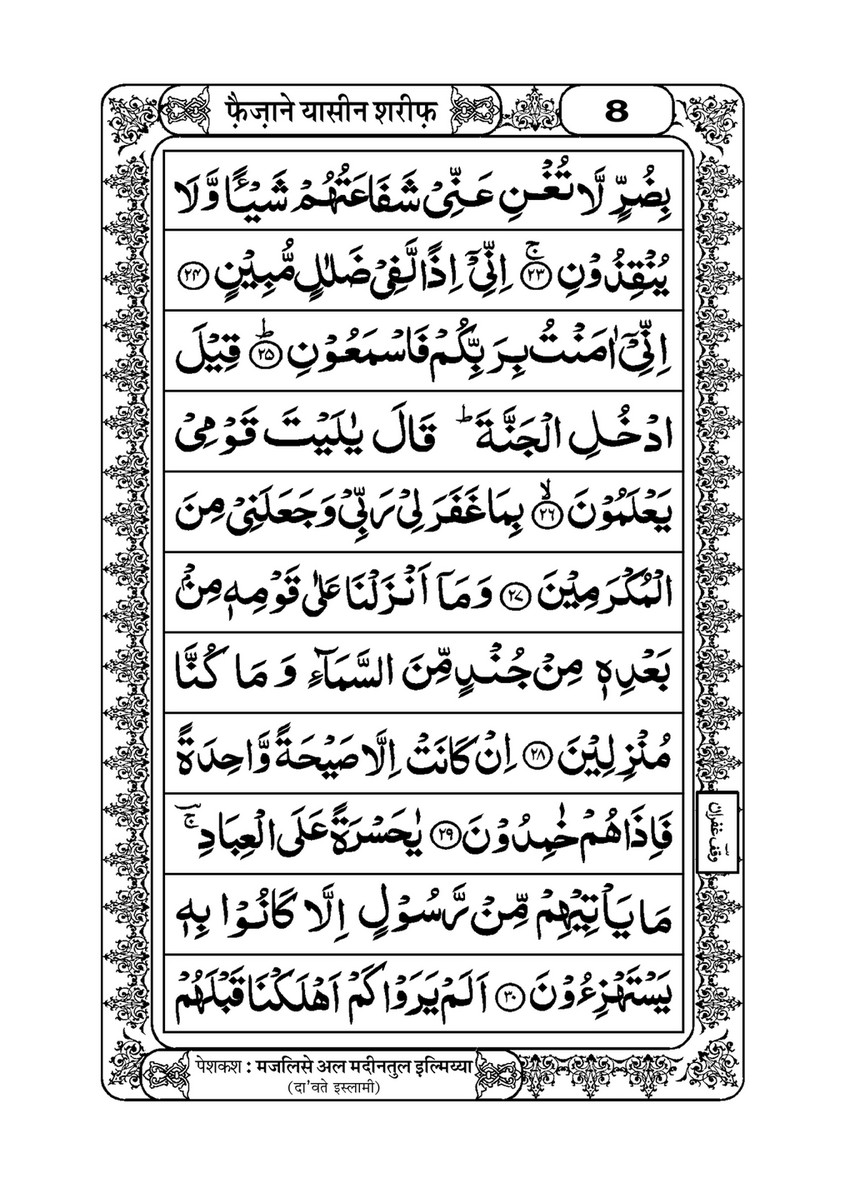 फ़ैज़ाने यासीन शरीफ़
8
بِضُرٍّ لَّا تُغْنِ عَنِّیْ شَفَاعَتُهُمْ شَیْـًٔا وَّ لَا
یُنْقِذُوْنِ ۚ﴿۲۳﴾ اِنِّیْۤ اِذًا لَّفِیْ ضَلٰلٍ مُّبِیْنٍ ﴿۲۴﴾
اِنِّیْۤ اٰمَنْتُ بِرَبِّكُمْ فَاسْمَعُوْنِ ؕ﴿۲۵﴾ قِیْلَ
ادْخُلِ الْجَنَّةَ ؕ قَالَ یٰلَیْتَ قَوْمِیْ
یَعْلَمُوْنَ ۙ﴿۲۶﴾ بِمَا غَفَرَ لِیْ رَبِّیْ وَ جَعَلَنِیْ مِنَ
الْمُكْرَمِیْنَ ﴿۲۷﴾ وَ مَاۤ اَنْزَلْنَا عَلٰى قَوْمِهٖ مِنْۢ
بَعْدِهٖ مِنْ جُنْدٍ مِّنَ السَّمَآءِ وَ مَا كُنَّا
مُنْزِلِیْنَ ﴿۲۸﴾ اِنْ كَانَتْ اِلَّا صَیْحَةً وَّاحِدَةً
فَاِذَا هُمْ خٰمِدُوْنَ ﴿۲۹﴾ یٰحَسْرَةً عَلَى الْعِبَادِ ۚؔ
وقف غفران
مَا یَاْتِیْهِمْ مِّنْ رَّسُوْلٍ اِلَّا كَانُوْا بِهٖ
یَسْتَهْزِءُوْنَ ﴿۳۰﴾ اَلَمْ یَرَوْا كَمْ اَهْلَكْنَا قَبْلَهُمْ
पेशकश : मजलिसे अल मदीनतुल इल्मिय्या
(दा'वते इस्लामी)